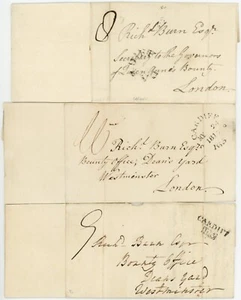 8 Richd Burn Esqr
Secretary to the Governors
of Queen Anne's Bounty
London.
Richd. Burn Esqr
Bounty Office, Dean's Yard
Westminster
London.
CARDIFF
9 Richd Burn Esqr
Bounty Office
Deans Yard
Westminster
CARDIFF